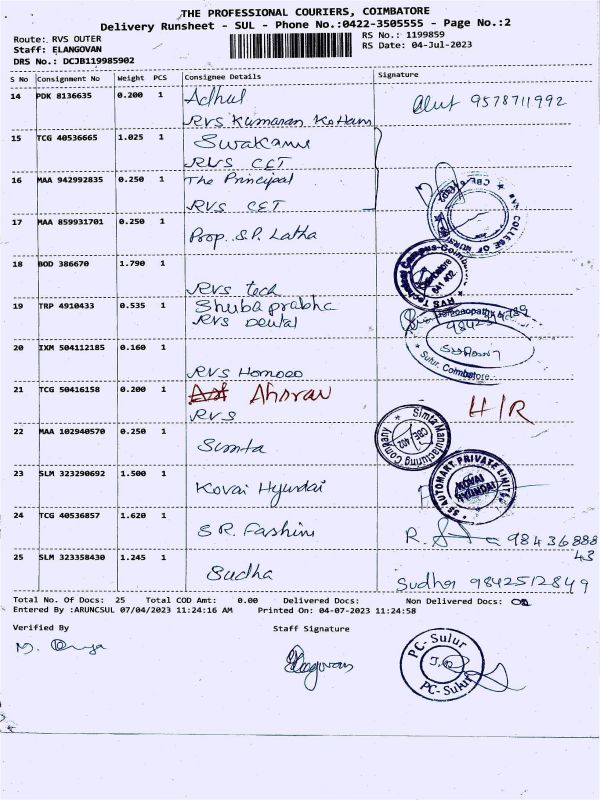 THE PROFESSIONAL COURIERS, COIMBATORE
Delivery Runsheet - SUL - Phone No.:0422-3505555 - Page No.:2
Route: RVS OUTER
RS No.: 1199859
Staff: ELANGOVAN
RS Date: 04-Jul-2023
DRS No.: DCJB119985902
S No Consignment No Weight PCS Consignee Details Signature
14 PDK 8136635 0.200 1 Adhul
9578711992
RVS Kumaran Kottam
15 TCG 40536665 1.025 1
RVS CET
16 MAA 942992835 0.250 1 The Principal
RVS CET
17 MAA 859931701 0.250 1 Prop. S.P. Latha
COLLEGE OF
18 BOD 386670 1.790 1
RVS tech
Technology Campus-Coimbatore
641 402
RVS
19 TRP 4910433 0.535 1 Shuba prabha
RVS Dental
20 IXM 504112185 0.160 1
RVS Homoeo
Homoeopathy
Sulur, Coimbatore.
21 TCG 50416158 0.200 1
RVS
H/R
22 MAA 102940570 0.250 1
Simta
Simta Manufacturing Company
CBE 402
23 SLM 323290692 1.500 1
Kovai Hyundai
SS AUTOMART PRIVATE LIMITED
KOVAI HYUNDAI
24 TCG 40536857 1.620 1
S R. Fashins
R.
98436888
43
25 SLM 323358430 1.245 1
Sudha
Sudha 9842512849
Total No. Of Docs: 25 Total COD Amt: 0.00 Delivered Docs: Non Delivered Docs:
Entered By :ARUNCSUL 07/04/2023 11:24:16 AM Printed On: 04-07-2023 11:24:58
Verified By Staff Signature
Elangovan
PC-Sulur
PC-Sulur